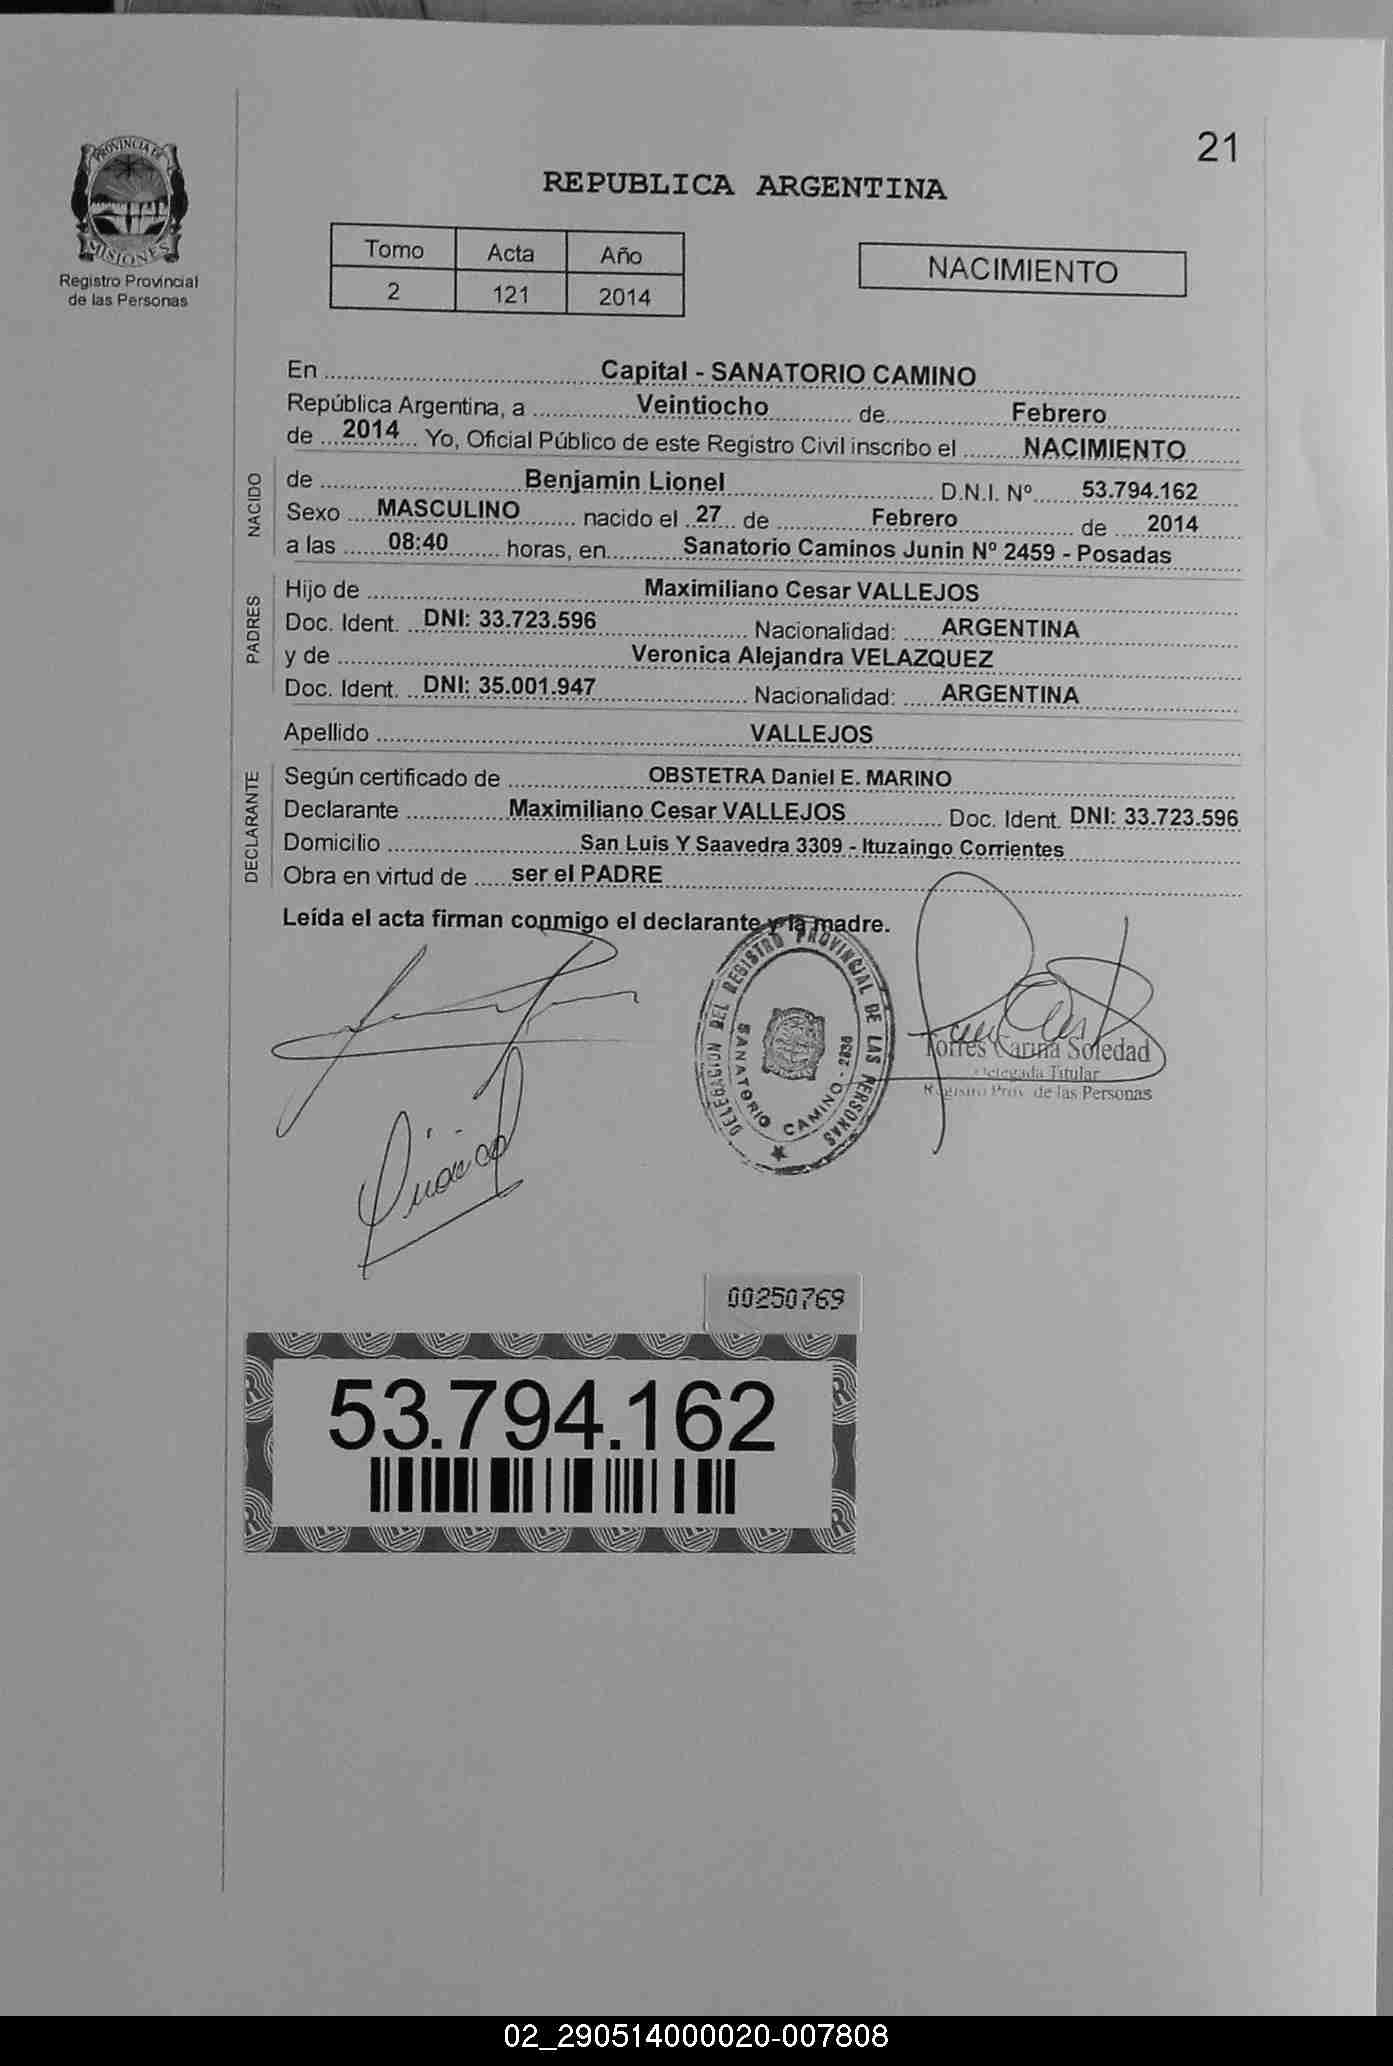 21
PROVINCIA DE
MISIONES
Registro Provincial
de las Personas
REPUBLICA ARGENTINA
Tomo Acta Año
2 121 2014
NACIMIENTO
En Capital - SANATORIO CAMINO
República Argentina, a Veintiocho de Febrero
de 2014 Yo, Oficial Público de este Registro Civil inscribo el NACIMIENTO
NACIDO
de Benjamin Lionel D.N.I. Nº 53.794.162
Sexo MASCULINO nacido el 27 de Febrero de 2014
a las 08:40 horas, en Sanatorio Caminos Junin Nº 2459 - Posadas
PADRES
Hijo de Maximiliano Cesar VALLEJOS
Doc. Ident. DNI: 33.723.596 Nacionalidad: ARGENTINA
y de Veronica Alejandra VELAZQUEZ
Doc. Ident. DNI: 35.001.947 Nacionalidad: ARGENTINA
Apellido VALLEJOS
DECLARANTE
Según certificado de OBSTETRA Daniel E. MARINO
Declarante Maximiliano Cesar VALLEJOS Doc. Ident. DNI: 33.723.596
Domicilio San Luis Y Saavedra 3309 - Ituzaingo Corrientes
Obra en virtud de ser el PADRE
Leída el acta firman conmigo el declarante y la madre.
DELEGACION DEL REGISTRO PROVINCIAL DE LAS PERSONAS
SANATORIO CAMINO - 2836
Torres Carina Soledad
Delegada Titular
Registro Prov. de las Personas
00250769
53.794.162
02_290514000020-007808